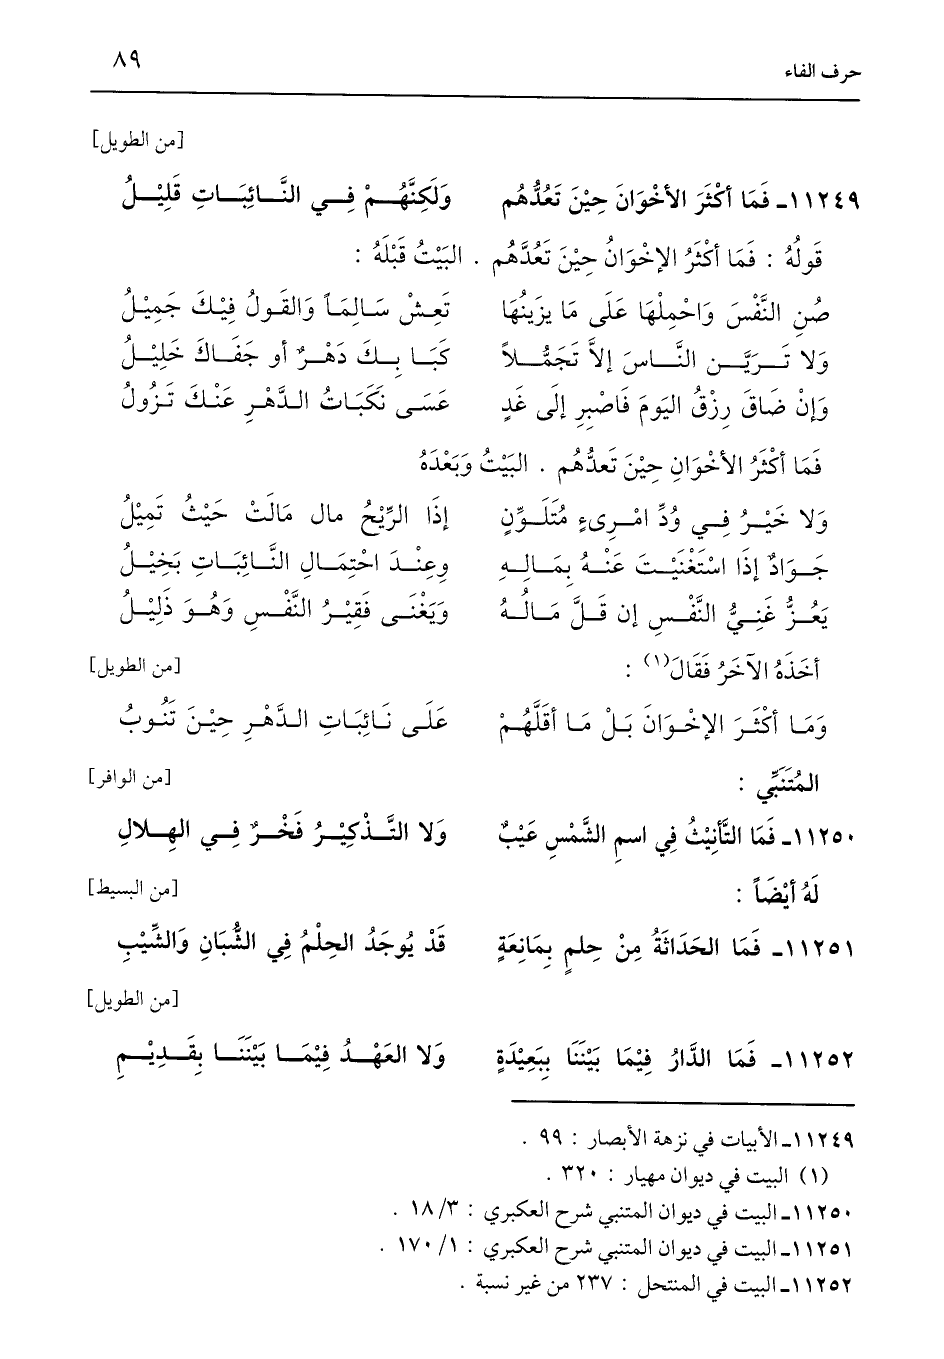 حرف الفاء ٨٩
[من الطويل]
١١٢٤٩ـ فَمَا أكْثَرَ الأخْوَانَ حِيْنَ تَعُدُّهُم وَلَكِنَّهُـمْ فِـي النَّـائِبَـاتِ قَلِيْـلُ
قَولُهُ : فَمَا أكْثَرُ الإخْوَانُ حِيْنَ تَعُدَّهُم . البَيْتُ قَبْلَهُ :
صُنِ النَّفْسَ وَاحْمِلْهَا عَلَى مَا يزَينُهَا تَعِـشْ سَـالِمَاً وَالقَـولُ فِيْـكَ جَمِيْلُ
وَلا تَـرَيَّـن النَّـاسَ إلاَّ تَجَمُّـلاً كَبَـا بِـكَ دَهْـرٌ أو جَفَـاكَ خَلِيْـلُ
وَإنْ ضَاقَ رِزْقُ اليَومَ فَاصْبِرِ إلَى غَدٍ عَسَـى نَكَبَـاتُ الـدَّهْـرِ عَنْـكَ تَـزُولُ
فَمَا أكْثَرُ الأخْوَانِ حِيْنَ تَعدُّهُم . البَيْتُ وَبَعْدَهُ
وَلا خَيْـرُ فِـي وُدِّ امْـرِىءٍ مُتَلَـوِّنٍ إذَا الرِّيْحُ مال مَالَتْ حَيْثُ تَمِيْلُ
جَـوَادٌ إذَا اسْتَغْنَيْـتَ عَنْـهُ بِمَـالِـهِ وعِنْـدَ احْتِمَـالِ النَّـائِبَـاتِ بَخِيْـلُ
يَعُـزُّ غَنِـيُّ النَّفْـسِ إن قَـلَّ مَـالُـهُ وَيَغْنَـى فَقِيْـرُ النَّفْـسِ وَهُـوَ ذَلِيْـلُ
أخَذَهُ الآخَرُ فَقَالَ(١) : [من الطويل]
وَمَـا أكْثَـرَ الإخْـوَانَ بَـلْ مَـا أقَلَّهُـمْ عَلَـى نَـائِبَـاتِ الـدَّهْـرِ حِيْـنَ تَنُـوبُ
المُتَنَبِّي : [من الوافر]
١١٢٥٠ـ فَمَا التَّأنِيْثُ فِي اسمِ الشَّمْسِ عَيْبٌ وَلا التَّـذْكِيْـرُ فَخْـرٌ فِـي الهِـلالِ
لَهُ أيْضَاً : [من البسيط]
١١٢٥١ـ فَمَا الحَدَاثَةُ مِنْ حِلمٍ بِمَانِعَةٍ قَدْ يُوجَدُ الحِلْمُ فِي الشُّبَانِ وَالشِّيْبِ
[من الطويل]
١١٢٥٢ـ فَمَا الدَّارُ فِيْمَا بَيْنَنَا بِبَعِيْدَةٍ وَلا العَهْـدُ فِيْمَـا بَيْنَنَـا بِقَـدِيْـمِ
١١٢٤٩ـ الأبيات في نزهة الأبصار : ٩٩ .
(١) البيت في ديوان مهيار : ٣٢٠ .
١١٢٥٠ـ البيت في ديوان المتنبي شرح العكبري : ٣/ ١٨ .
١١٢٥١ـ البيت في ديوان المتنبي شرح العكبري : ١/ ١٧٠ .
١١٢٥٢ـ البيت في المنتحل : ٢٣٧ من غير نسبة .